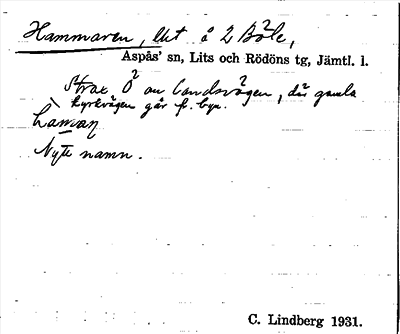 Hammaren, lht å 2 Böle,
Aspås' sn, Lits och Rödöns tg, Jämtl. l.
Strax Ö om landsvägen, där gamla
kyrkvägen går fr. byn.
Nytt namn.
C. Lindberg 1931.